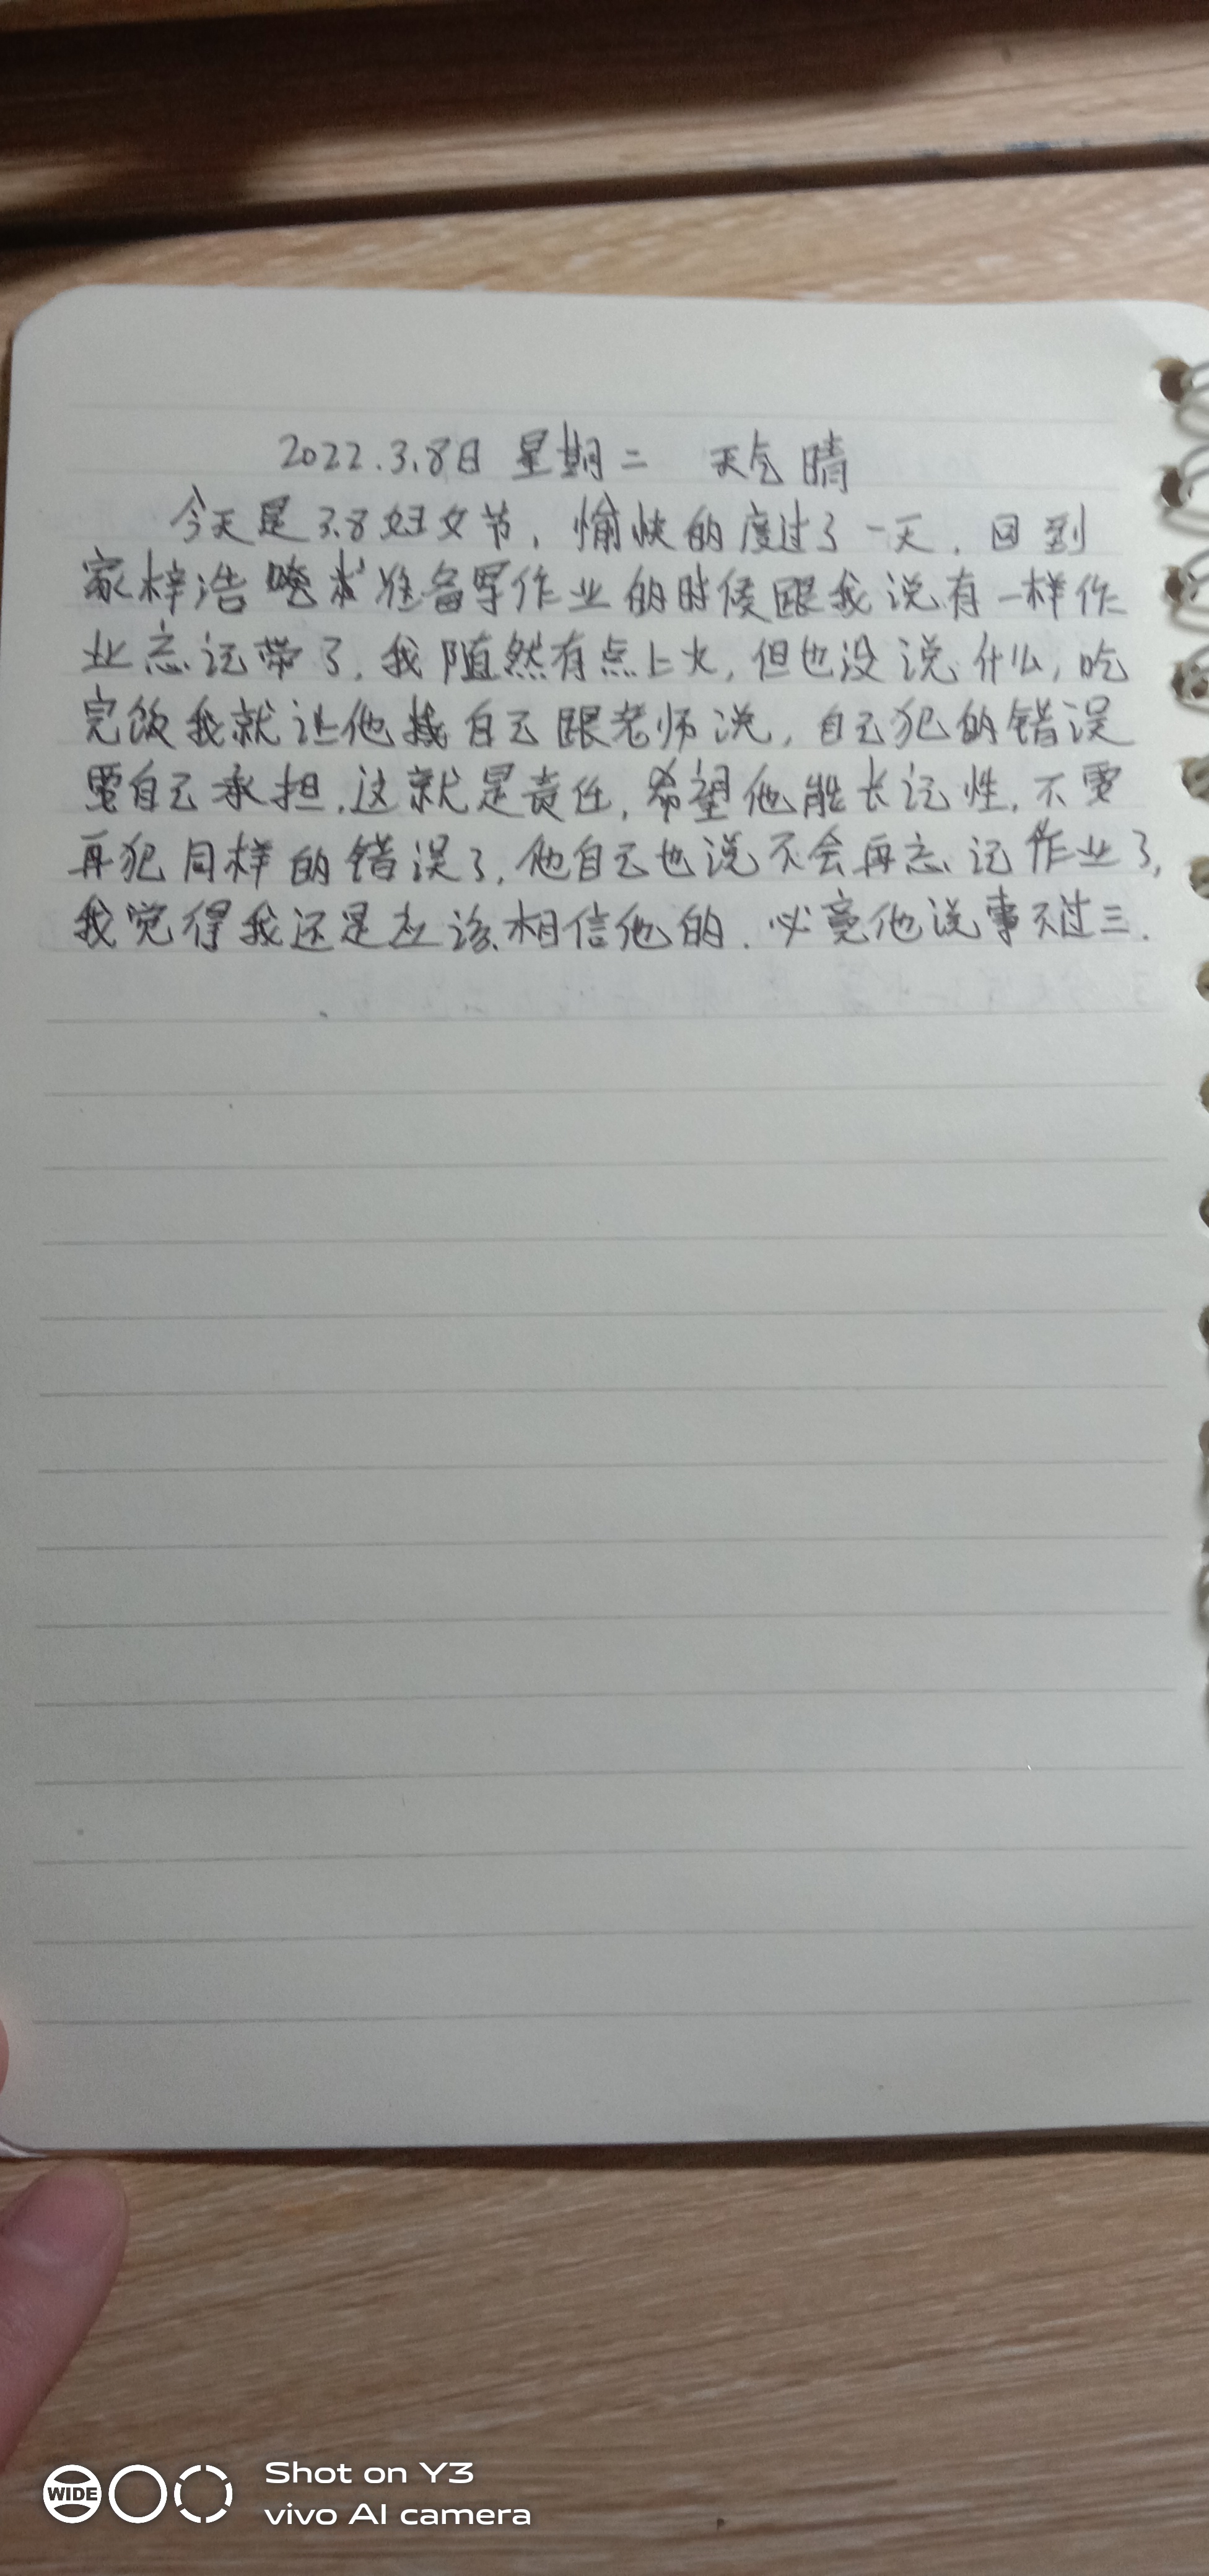 2022.3.8日 星期二 天气晴
今天是3.8妇女节,愉快的度过了一天.回到
家梓浩准备写作业的时候跟我说有一样作
业忘记带了,我随然有点上火,但也没说什么,吃
完饭我就让他自己跟老师说,自己犯的错误
要自己承担.这就是责任,希望他能长记性,不要
再犯同样的错误了,他自己也说不会再忘记作业了,
我觉得我还是应该相信他的.必竟他说事不过三.
WIDE
Shot on Y3
vivo AI camera